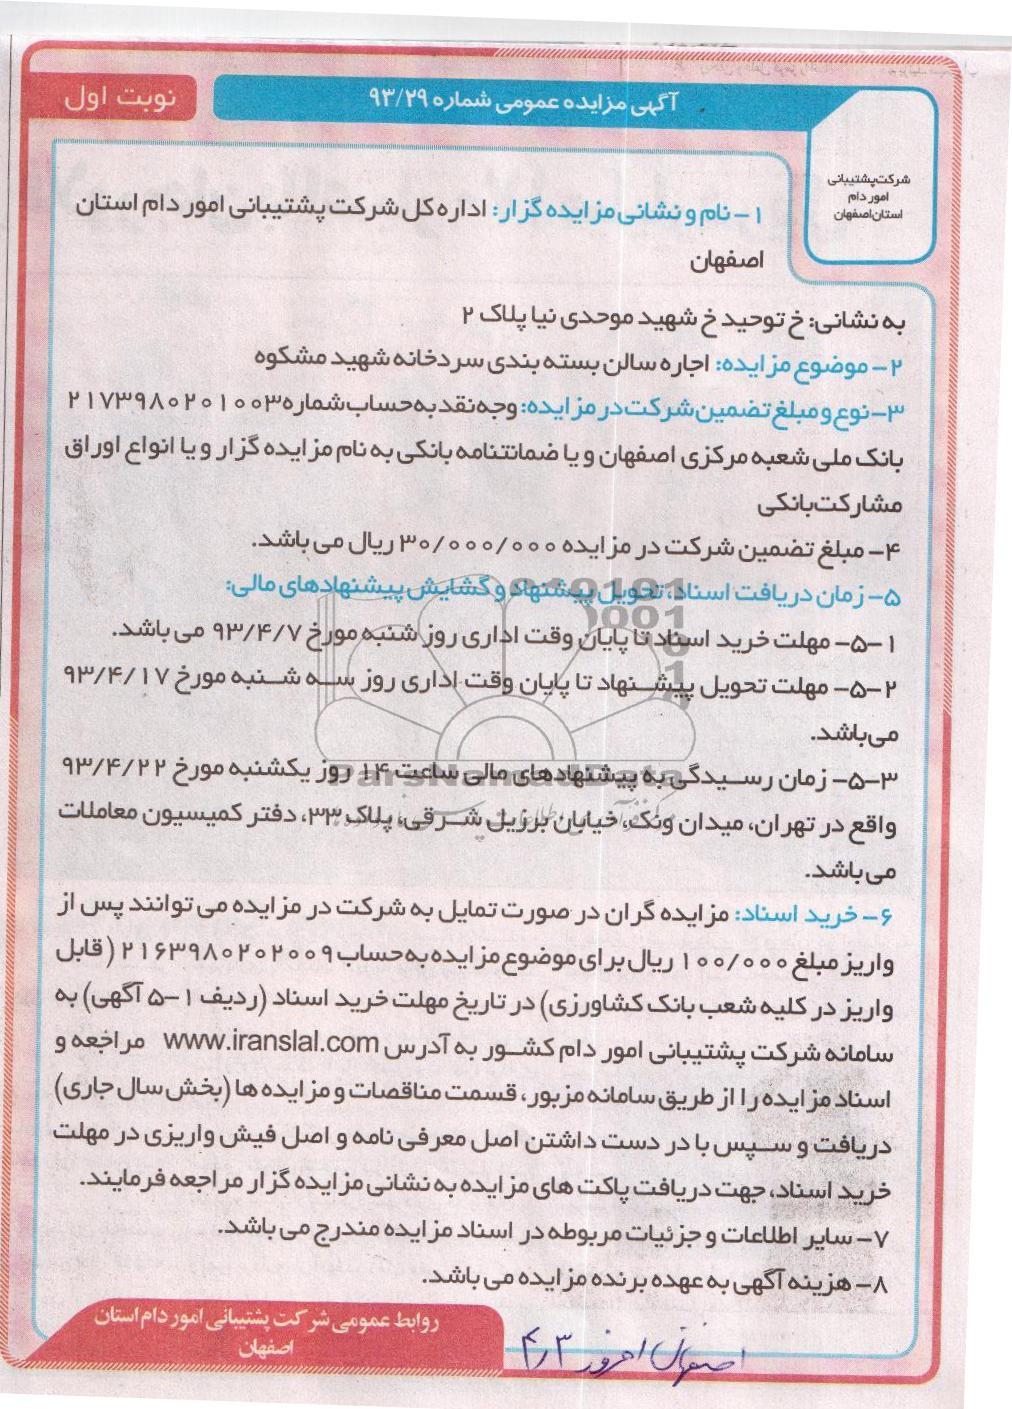 آگهی مزایده عمومی شماره ۹۳/۲۹
نوبت اول
شرکت پشتیبانی
امور دام
استان اصفهان
۱- نام و نشانی مزایده گزار: اداره کل شرکت پشتیبانی امور دام استان
اصفهان
به نشانی: خ توحید خ شهید موحدی نیا پلاک ۲
۲- موضوع مزایده: اجاره سالن بسته بندی سردخانه شهید مشکوه
۳- نوع و مبلغ تضمین شرکت در مزایده: وجه نقد به حساب شماره ۲۱۷۳۹۸۰۲۰۱۰۰۳
بانک ملی شعبه مرکزی اصفهان و یا ضمانتنامه بانکی به نام مزایده گزار و یا انواع اوراق
مشارکت بانکی
۴- مبلغ تضمین شرکت در مزایده ۳۰/۰۰۰/۰۰۰ ریال می باشد.
۵- زمان دریافت اسناد، تحویل پیشنهاد و گشایش پیشنهادهای مالی:
۵-۱- مهلت خرید اسناد تا پایان وقت اداری روز شنبه مورخ ۹۳/۴/۷ می باشد.
۵-۲- مهلت تحویل پیشنهاد تا پایان وقت اداری روز سه شنبه مورخ ۹۳/۴/۱۷
می باشد.
۵-۳- زمان رسیدگی به پیشنهادهای مالی ساعت ۱۴ روز یکشنبه مورخ ۹۳/۴/۲۲
واقع در تهران، میدان ونک، خیابان برزیل شرقی، پلاک ۳۳، دفتر کمیسیون معاملات
می باشد.
۶- خرید اسناد: مزایده گران در صورت تمایل به شرکت در مزایده می توانند پس از
واریز مبلغ ۱۰۰/۰۰۰ ریال برای موضوع مزایده به حساب ۲۱۶۳۹۸۰۲۰۲۰۰۹ (قابل
واریز در کلیه شعب بانک کشاورزی) در تاریخ مهلت خرید اسناد (ردیف ۱-۵ آگهی) به
سامانه شرکت پشتیبانی امور دام کشور به آدرس www.iranslal.com مراجعه و
اسناد مزایده را از طریق سامانه مزبور، قسمت مناقصات و مزایده ها (بخش سال جاری)
دریافت و سپس با در دست داشتن اصل معرفی نامه و اصل فیش واریزی در مهلت
خرید اسناد، جهت دریافت پاکت های مزایده به نشانی مزایده گزار مراجعه فرمایند.
۷- سایر اطلاعات و جزئیات مربوطه در اسناد مزایده مندرج می باشد.
۸- هزینه آگهی به عهده برنده مزایده می باشد.
روابط عمومی شرکت پشتیبانی امور دام استان
اصفهان
اصفهان امروز ۴/۳
ParsNamadData